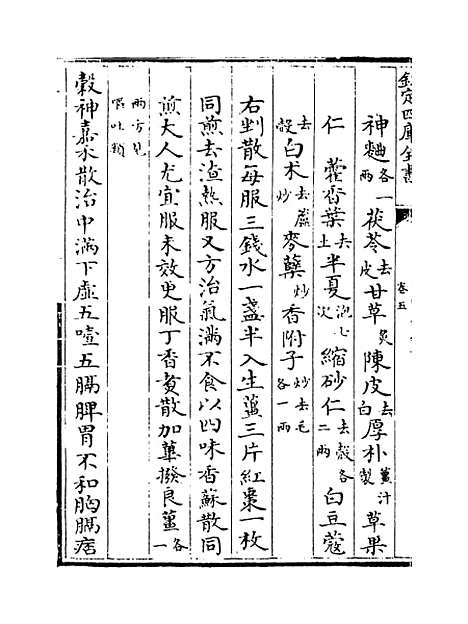 欽定四庫全書
卷五
神麯各一兩茯苓去皮甘草炙陳皮去白厚朴薑汁製草果
仁藿香葉去土半夏泡七次縮砂仁去殼各二兩白豆蔻
去殼白术去蘆炒麥糵炒香附子炒去毛各一兩
右剉散每服三錢水一盞半入生薑三片紅棗一枚
同煎去渣熱服又方治氣滿不食以四味香蘇散同
煎大人尤宜服未效更服丁香煑散加蓽撥良薑各一
兩方見嘔吐類
穀神嘉禾散治中滿下虛五噎五膈脾胃不和胸膈痞